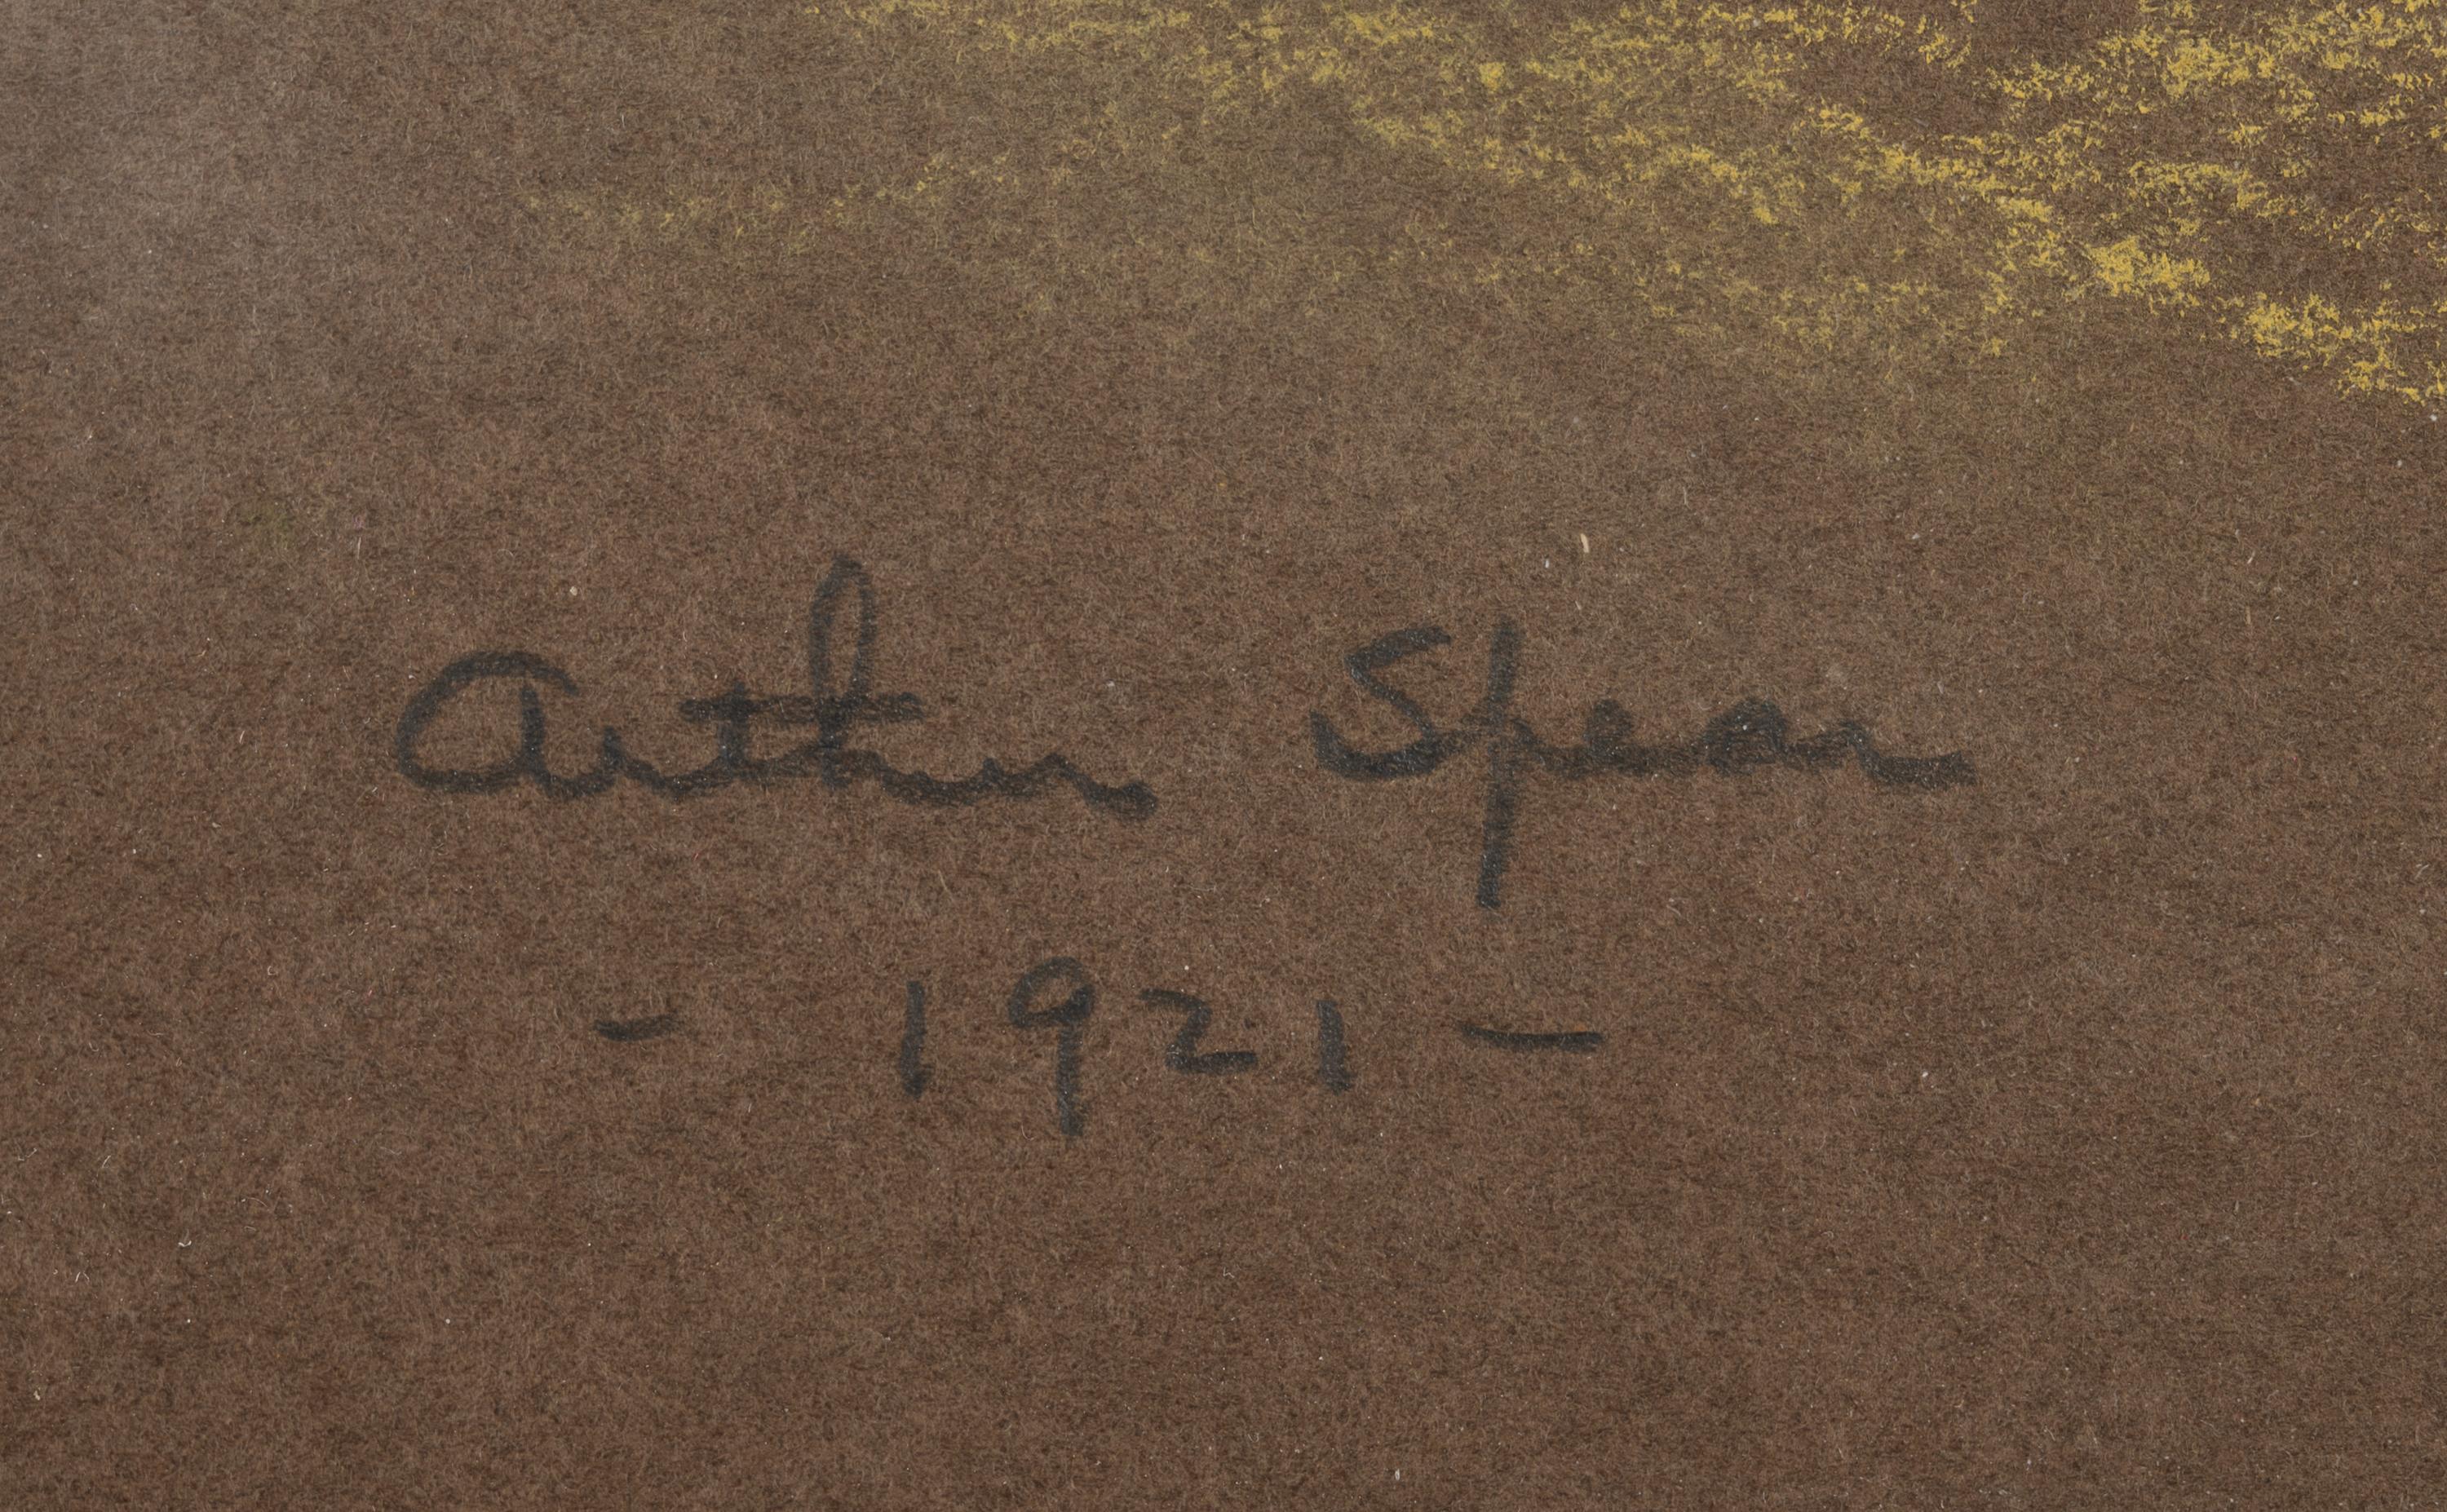 Arthur Spear
- 1921 -